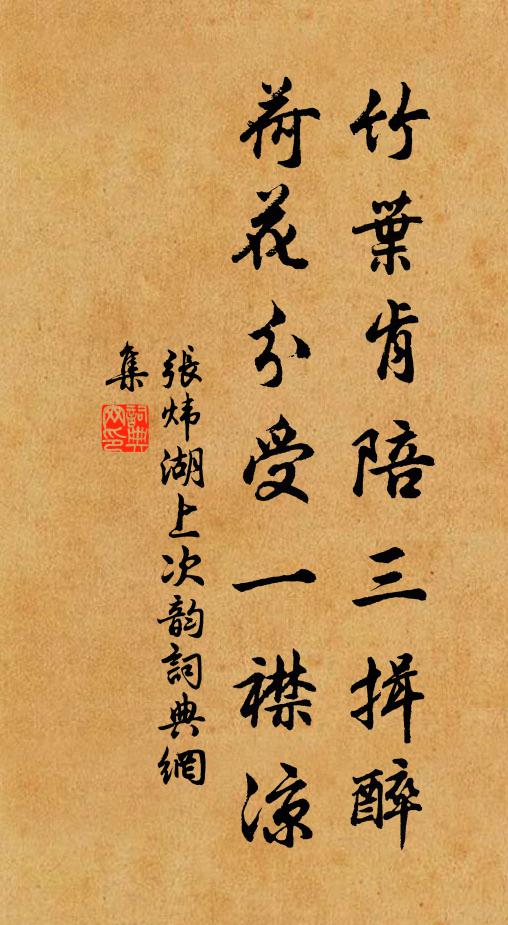 竹葉肯陪三揖醉
荷花分受一襟涼
張煒湖上次韵詞典網
集
詞典網印